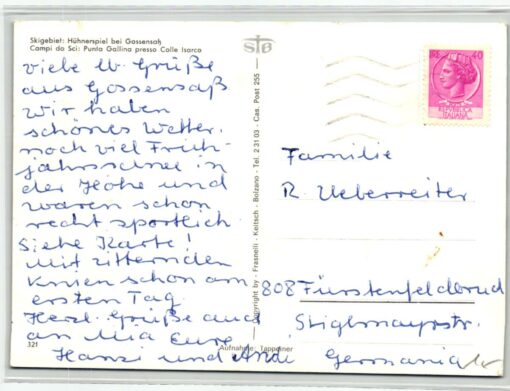 Skigebiet: Hühnerspiel bei Gossensaß
Campi da Sci: Punta Gallina presso Colle Isarco
viele lb. Grüße
aus Gossensaß
wir haben
schönes Wetter,
noch viel Früh-
jahrsschnee in
der Höhe und
waren schon
recht sportlich
Siehe Karte!
mit zitternden
Knien schon am
ersten Tag
Herzl. Grüße auch
an Mia Eure
Hansi und Andi
321
Copyright by - Frasnelli - Keitsch - Bolzano - Tel. 2 31 03 - Cas. Post 255 -
STB
Aufnahme: Tappeiner
40
REPUBBLICA
ITALIANA
Familie
R. Ueberreiter
808 Fürstenfeldbruck
Stiglmayrstr.
Germania